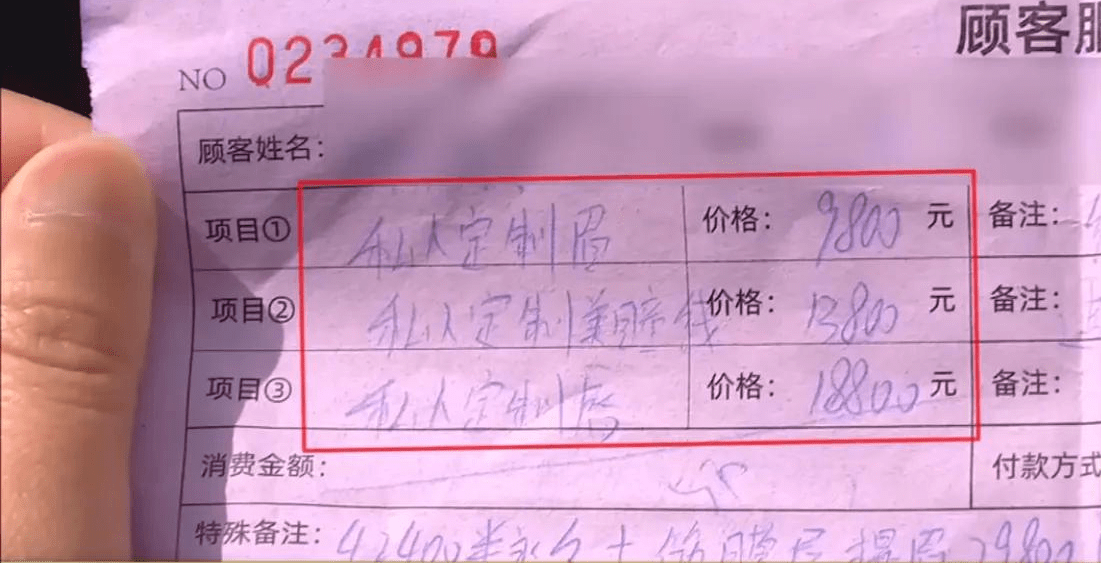 NO 0234979 顾客服
顾客姓名:
项目① 私人定制眉 价格: 9800 元 备注:
项目② 私人定制美瞳线 价格: 13800 元 备注:
项目③ 私人定制唇 价格: 18800 元 备注:
消费金额: 付款方式
特殊备注: 42400半永久+ 29800